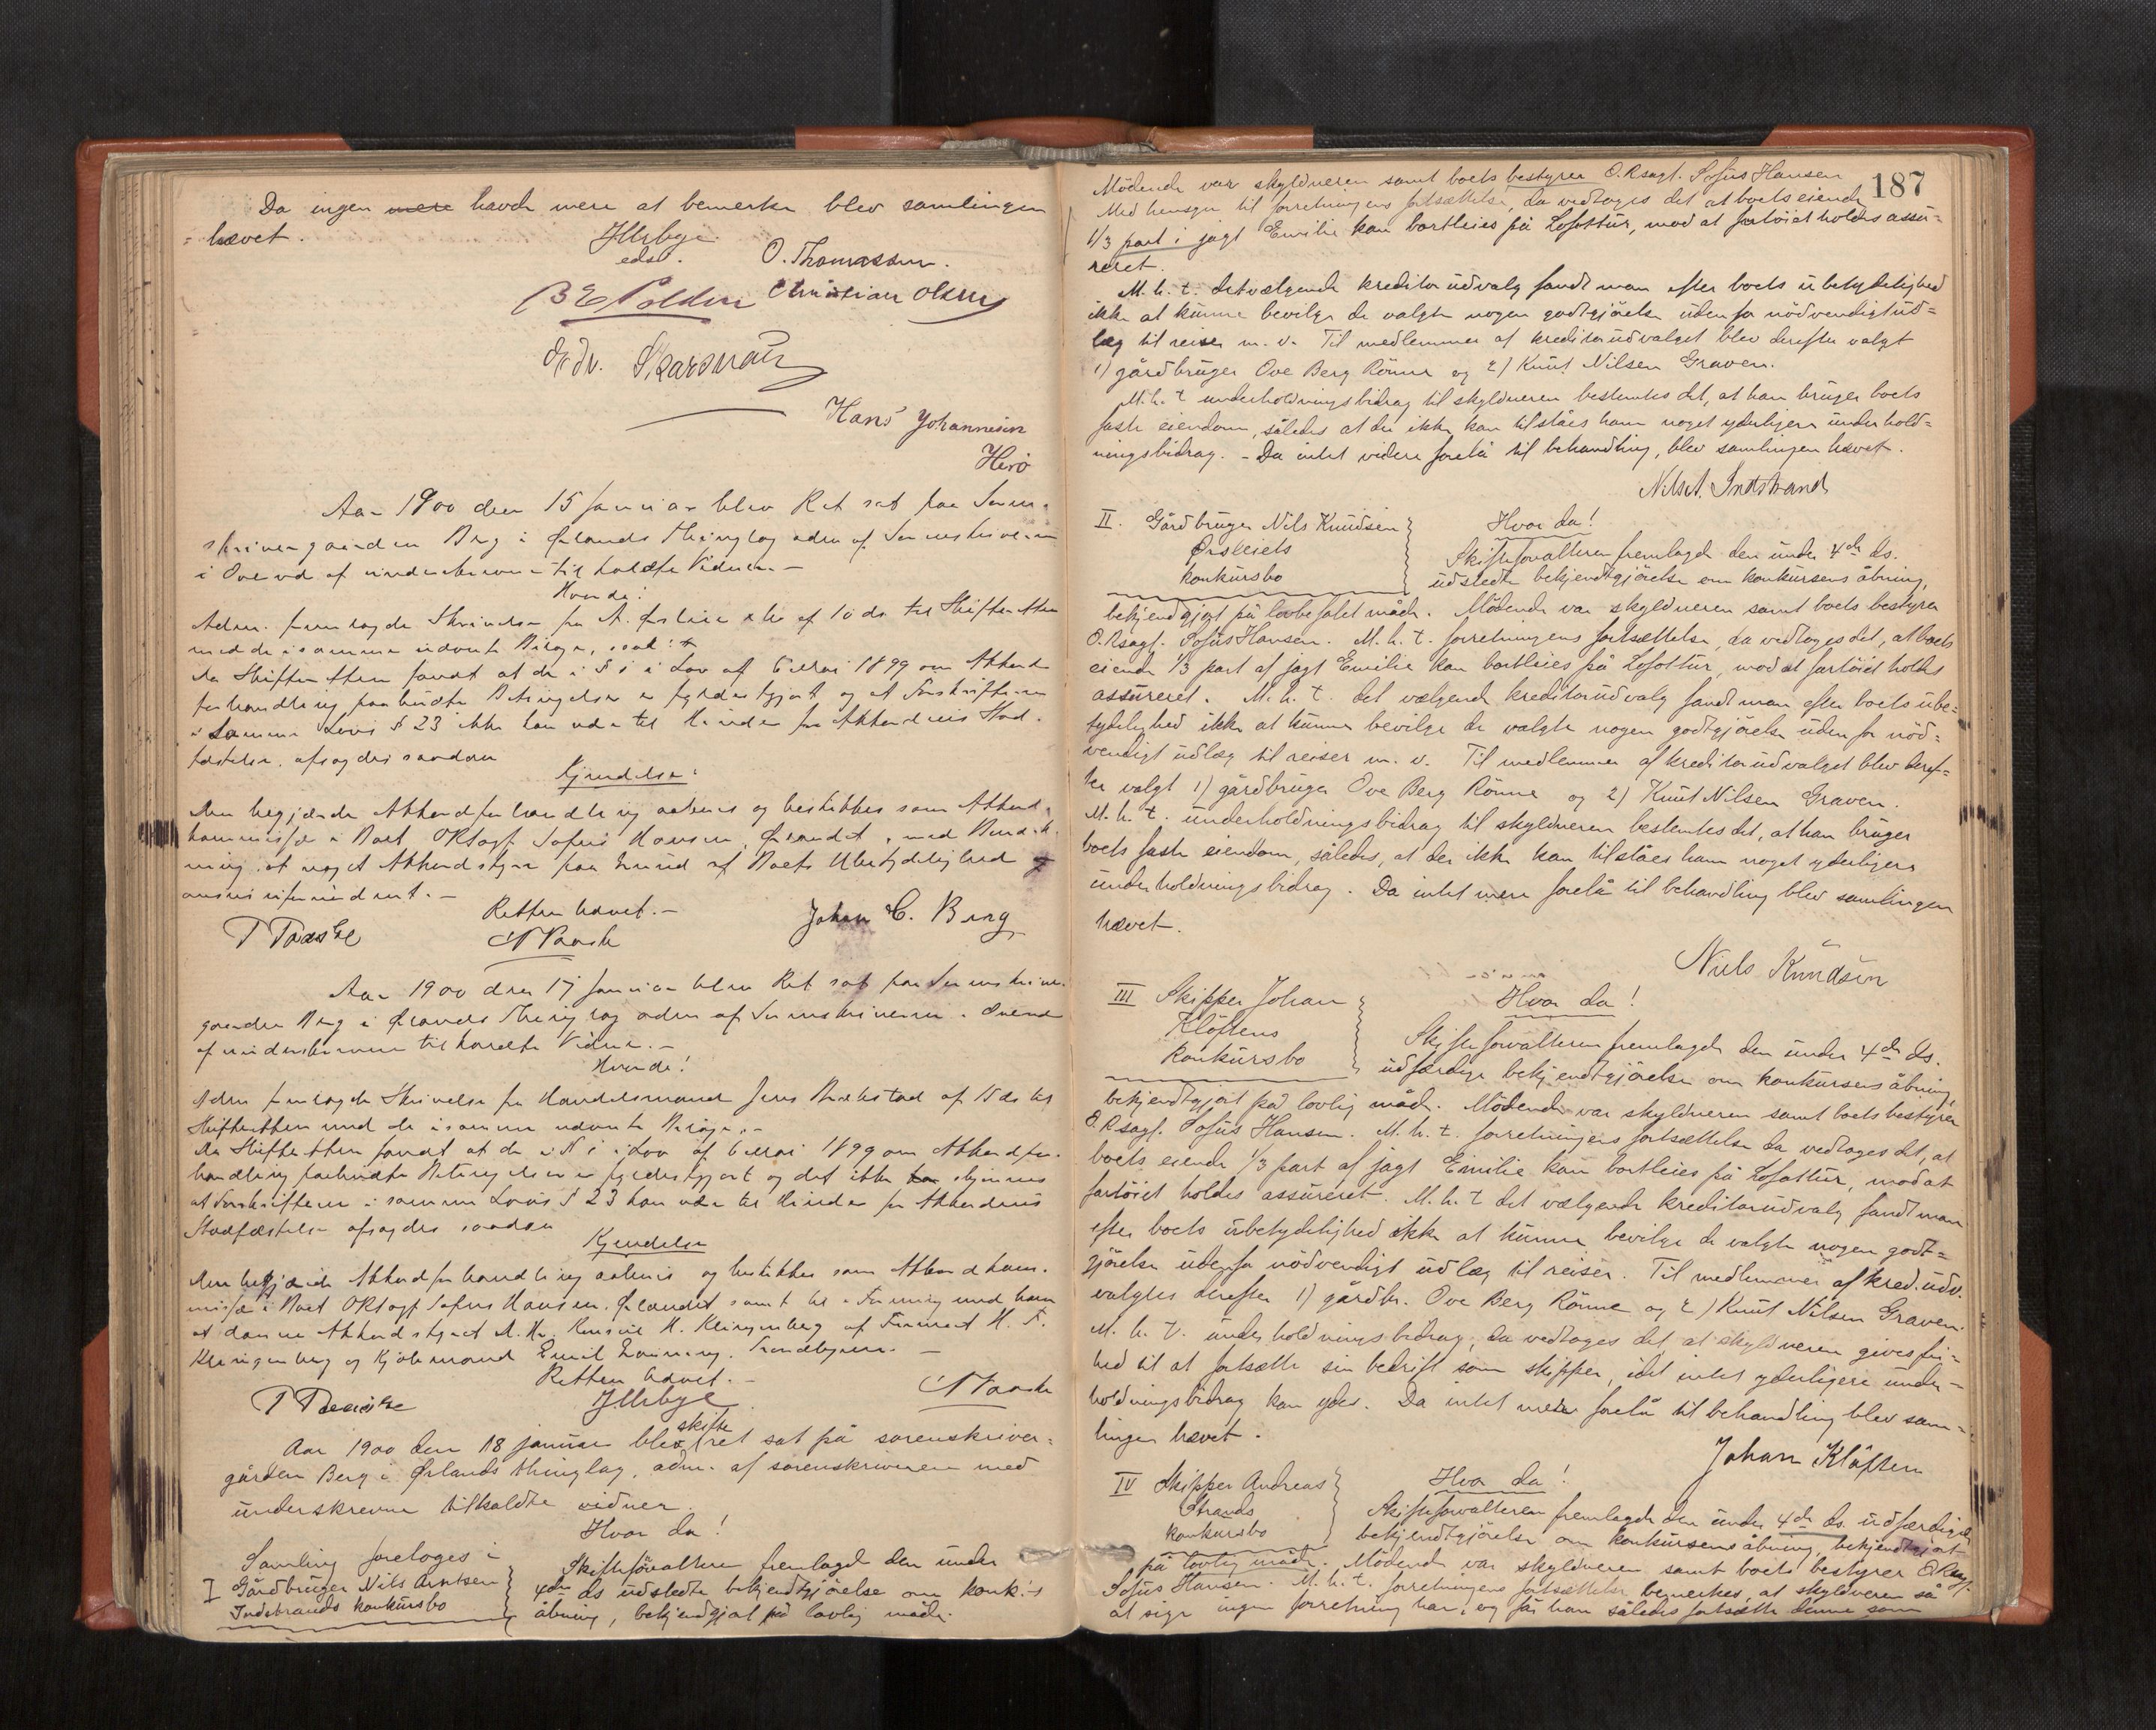 Da ingen mere havde mere at bemerke blev samlingen
hævet.
Illsbye
edsv.
O. Thomassen.
Christian Olsen
Hans Johannesen
Herö
Aar 1900 den 15 Januar blev Ret sat paa Soren-
skrivergaarden Berg i Ørlands Thinglag adm af Sorenskriveren
i Overvær af underskrevne tilkaldte Vidner. —
Hvorda!
Adm. fremlagde Skrivelse fra A. af 10 ds til Skifteretten
med de i samme nævnte Bilage,
Da Skifteretten fandt at de i § 1 i Lov af 6 Mai 1899 om Akkord-
forhandling paabudte Betingelser er fyldestgjort og at Forskrifterne
i samme Lovs § 23 ikke kan være til Hinder for Akkordens Stad-
fæstelse, afsagdes saadan
Kjendelse:
Den begjærede Akkordforhandling aabnes og beskikkes som Akkord-
kommissær i Boet ORsagf Sofus Hansen, Ørlandet, med Bemærk-
ning, at noget Akkordstyre paa Grund af Boets Ubetydelighed
ansees ufornødent. —
Retten hævet. —
Johan C. Berg
Aar 1900 den 17 Januar blev Ret sat paa Sorenskriver-
gaarden Berg i Ørlands Thinglag adm af Sorenskriveren i Overvær
af underskrevne tilkaldte Vidner. —
Hvorda!
Adm fremlagde Skrivelse fra Handelsmand Jens af 15 ds til
Skifteretten med de i samme nævnte Bilage. —
Da Skifteretten fandt at de i § 1 i Lov af 6 Mai 1899 om Akkordfor-
handling paabudte Betingelser er fyldestgjort og det ikke kan skjønnes
at Forskrifterne i samme Lovs § 23 kan være til Hinder for Akkordens
Stadfæstelse afsagdes saadan
Kjendelse
Den begjærede Akkordforhandling aabnes og beskikkes som Akkordkom-
missær i Boet ORsagf Sofus Hansen, Ørlandet samt til i Forening med ham
at danne Akkordstyret M. Klingenberg af Firmaet H. F.
Klingenberg og Kjøbmand Emil Trondhjem. —
Retten hævet. —
Illsbye
Aar 1900 den 18 januar blev skifteret sat på sorenskriver-
gården Berg i Ørlands thinglag, adm. af sorenskriveren med
underskrevne tilkaldte vidner.
Hvor da!
Samling foretoges i
I Gårdbruger Nils Arntsen
Indstrands konkursbo
Skifteforvalteren fremlagde den under
4de ds udstedte bekjendtgjörelse om konk.s
åbning, bekjendtgjort på lovlig måde.
187
Mödende var skyldneren samt boets bestyrer O.Rsagf. Sofus Hansen
Med hensyn til forretningens fortsættelse, da vedtoges det at boets eiende
1/3 part i jagt Emilie kan bortleies på Lofottur, mod at fartöiet holdes assu-
reret.
M. h. t. det vælgende kreditorudvalg fandt man efter boets ubetydelighed
ikke at kunne bevilge de valgte nogen godtgjörelse udenfor nödvendigt ud-
læg til reiser m. v. Til medlemmer af kreditorudvalget blev derefter valgt
1) gårdbruger Ove Berg Rönne og 2) Knut Nilsen Graven.
M. h. t underholdningsbidrag til skyldneren bestemtes det, at han bruger boets
faste eiendom, således at der ikke kan tilståes ham noget yderligere underhold-
ningsbidrag. – Da intet videre forelå til behandling, blev samlingen hævet.
Nils A. Indstrand
II. Gårdbruger Nils Knudsen
Örsleiets
konkursbo
Hvor da!
Skifteforvalteren fremlagde den under 4de ds.
udstedte bekjendtgjörelse om konkursens åbning,
bekjendtgjort på lovbefalet måde. Mödende var skyldneren samt boets bestyrer
O.Rsagf. Sofus Hansen. M. h. t. forretningens fortsættelse, da vedtoges det, at boets
eiende 1/3 part af jagt Emilie kan bortleies på Lofottur, mod at fartöiet holdes
assureret. M. h. t. det vælgende kreditorudvalg fandt man efter boets ube-
tydelighed ikke at kunne bevilge de valgte nogen godtgjörelse udenfor nöd-
vendigt udlæg til reiser m. v. Til medlemmer af kreditorudvalget blev deref-
ter valgt 1) gårdbruger Ove Berg Rönne og 2) Knut Nilsen Graven.
M. h. t. underholdningsbidrag til skyldneren bestemtes det, at han bruger
boets faste eiendom, således, at der ikke kan tilståes ham noget yderligere
underholdningsbidrag. Da intet mere forelå til behandling blev samlingen
hævet.
Niels Knudsen
III Skipper Johan
Klöftens
konkursbo
Hvor da!
Skifteforvalteren fremlagde den under 4de ds.
udfærdige bekjendtgjörelse om konkursens åbning,
bekjendtgjort på lovlig måde. Mödende var skyldneren samt boets bestyrer
O.Rsagf. Sofus Hansen. M. h. t. forretningens fortsættelse da vedtoges det, at
boets eiende 1/3 part af jagt Emilie kan bortleies på Lofottur, mod at
fartöiet holdes assureret. M. h. t det vælgende kreditorudvalg fandt man
efter boets ubetydelighed ikke at kunne bevilge de valgte nogen godt-
gjörelse udenfor nödvendigt udlæg til reiser. Til medlemmer af kred.udv.
valgtes derefter 1) gårdbr. Ove Berg Rönne og 2) Knut Nilsen Graven.
M. h. t. underholdningsbidrag, da vedtoges det, at skyldneren gives fri-
hed til at fortsætte sin bedrift som skipper, idet intet yderligere under-
holdningsbidrag kan ydes. Da intet mere forelå til behandling blev sam-
lingen hævet.
Johan Klöften
IV Skipper Andreas
Strands
konkursbo
Hvor da!
Skifteforvalteren fremlagde den under 4de ds. udfærdigede
bekjendtgjörelse om konkursens åbning, bekjendtgjort
på lovlig måde. Mödende var skyldneren samt boets bestyrer O.Rsagf.
Sofus Hansen. M. h. t. forretningens fortsættelse bemerkes, at skyldneren så
at sige ingen forretning har, og får han således fortsætte denne som